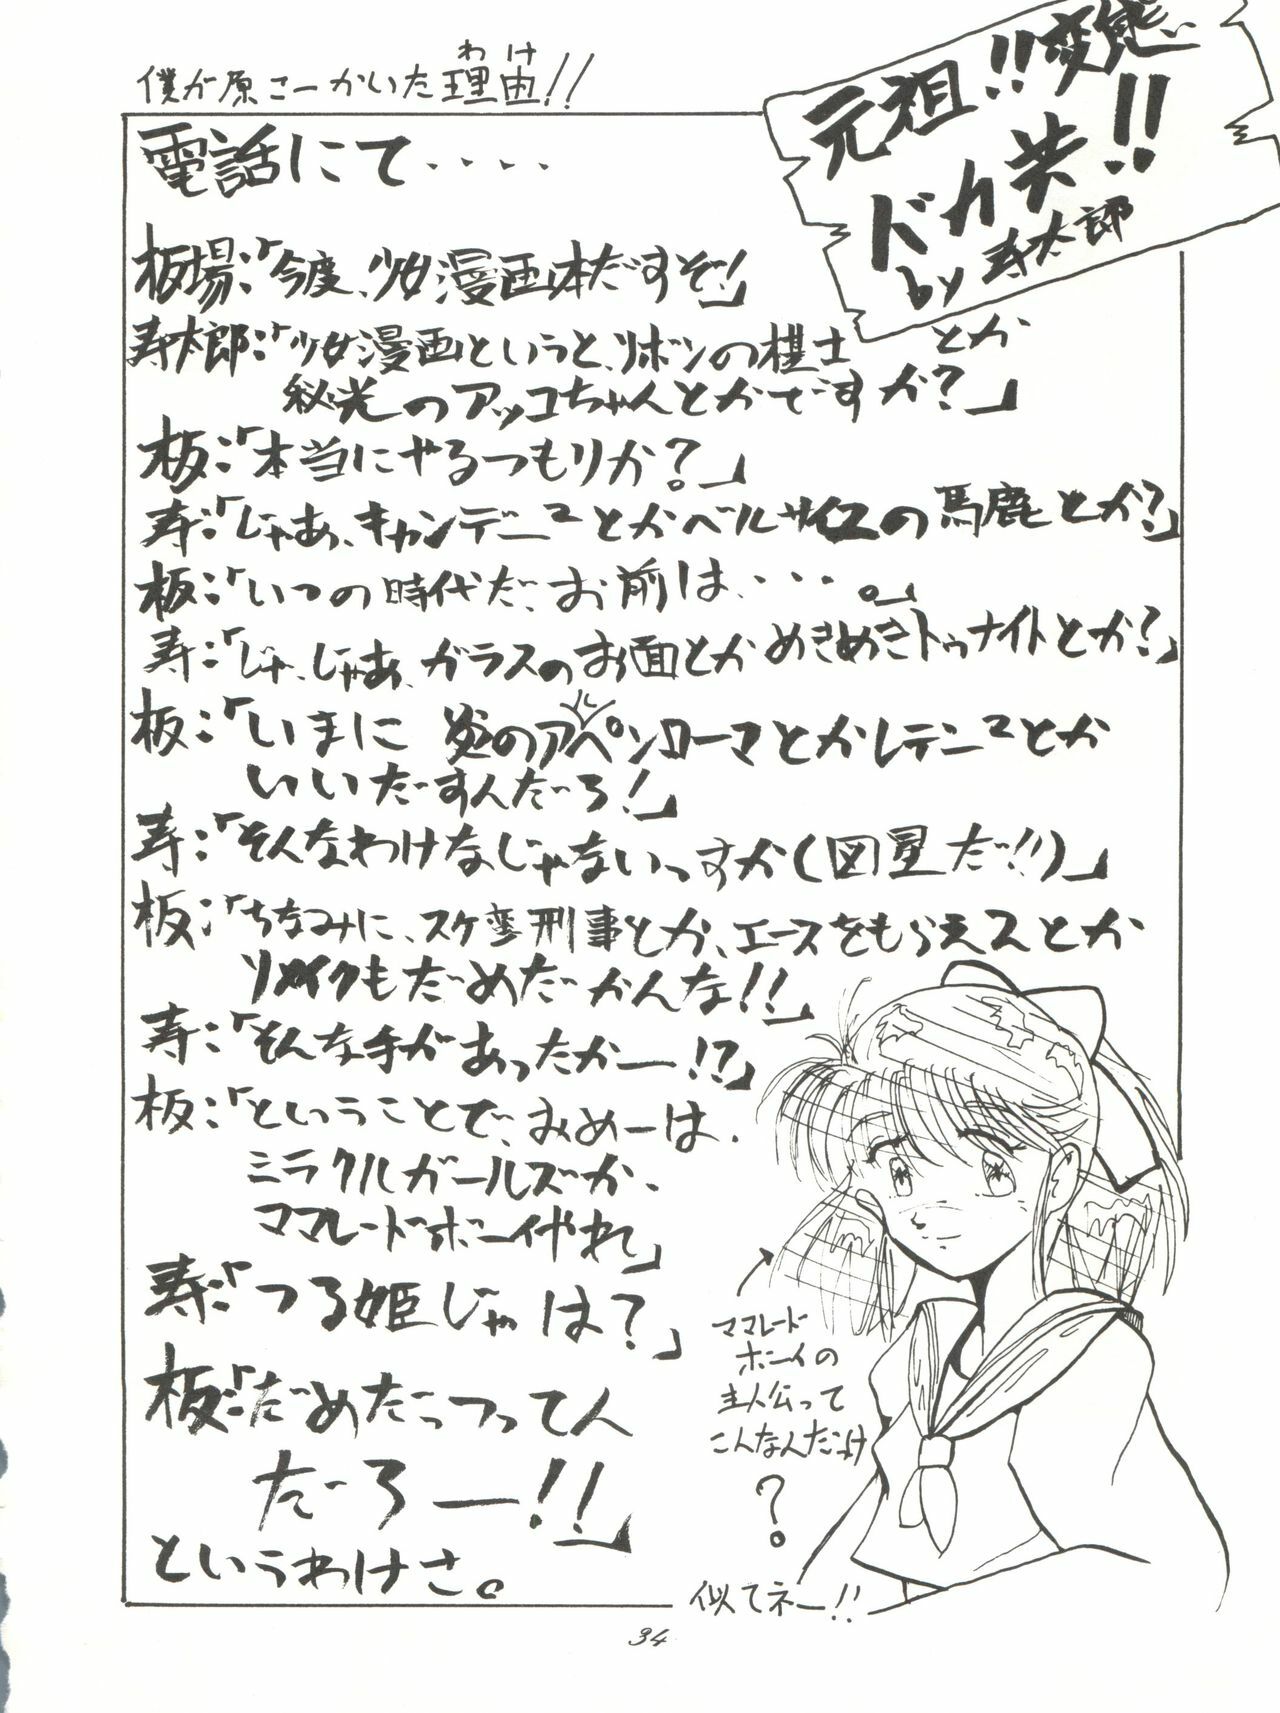 元祖!!変態
ドカ弁!!
by 寿太郎
僕が原こーかいた理由!!
わけ
電話にて‥‥
板場:「今度、少女漫画本だすぞ!」
寿太郎:「少女漫画というと、リボンの棋士とか
秘光のアッコちゃんとかですか?」
板:「本当にやるつもりか?。」
寿:「じゃあ、キャンデニ²とかベルサイユの馬鹿とか?」
板:「いつの時代だ、お前は‥‥。」
寿:「じゃ、じゃあ、ガラスのお面とかめきめきトゥナイトとか?」
板:「いまに 炎のアルペンローマとかレテニ²とか
いいだすんだろ!」
寿:「そんなわけなじゃないっすか(図星だ!!)」
板:「ちなみに、スケ番刑事とか、エースをもらえ2とか
リメイクもだめだかんな!!」
寿:「そんな手があったかー!?」
板:「ということで、おめーは、
ミラクルガールズか、
ママレードボーイやれ」
寿:「つる姫じゃは?」
板:「だめだっつってん
だろー!!」
というわけさ。
ママレード
ボーイの
主人公って
こんなんだっけ
?
似てネー!!
34